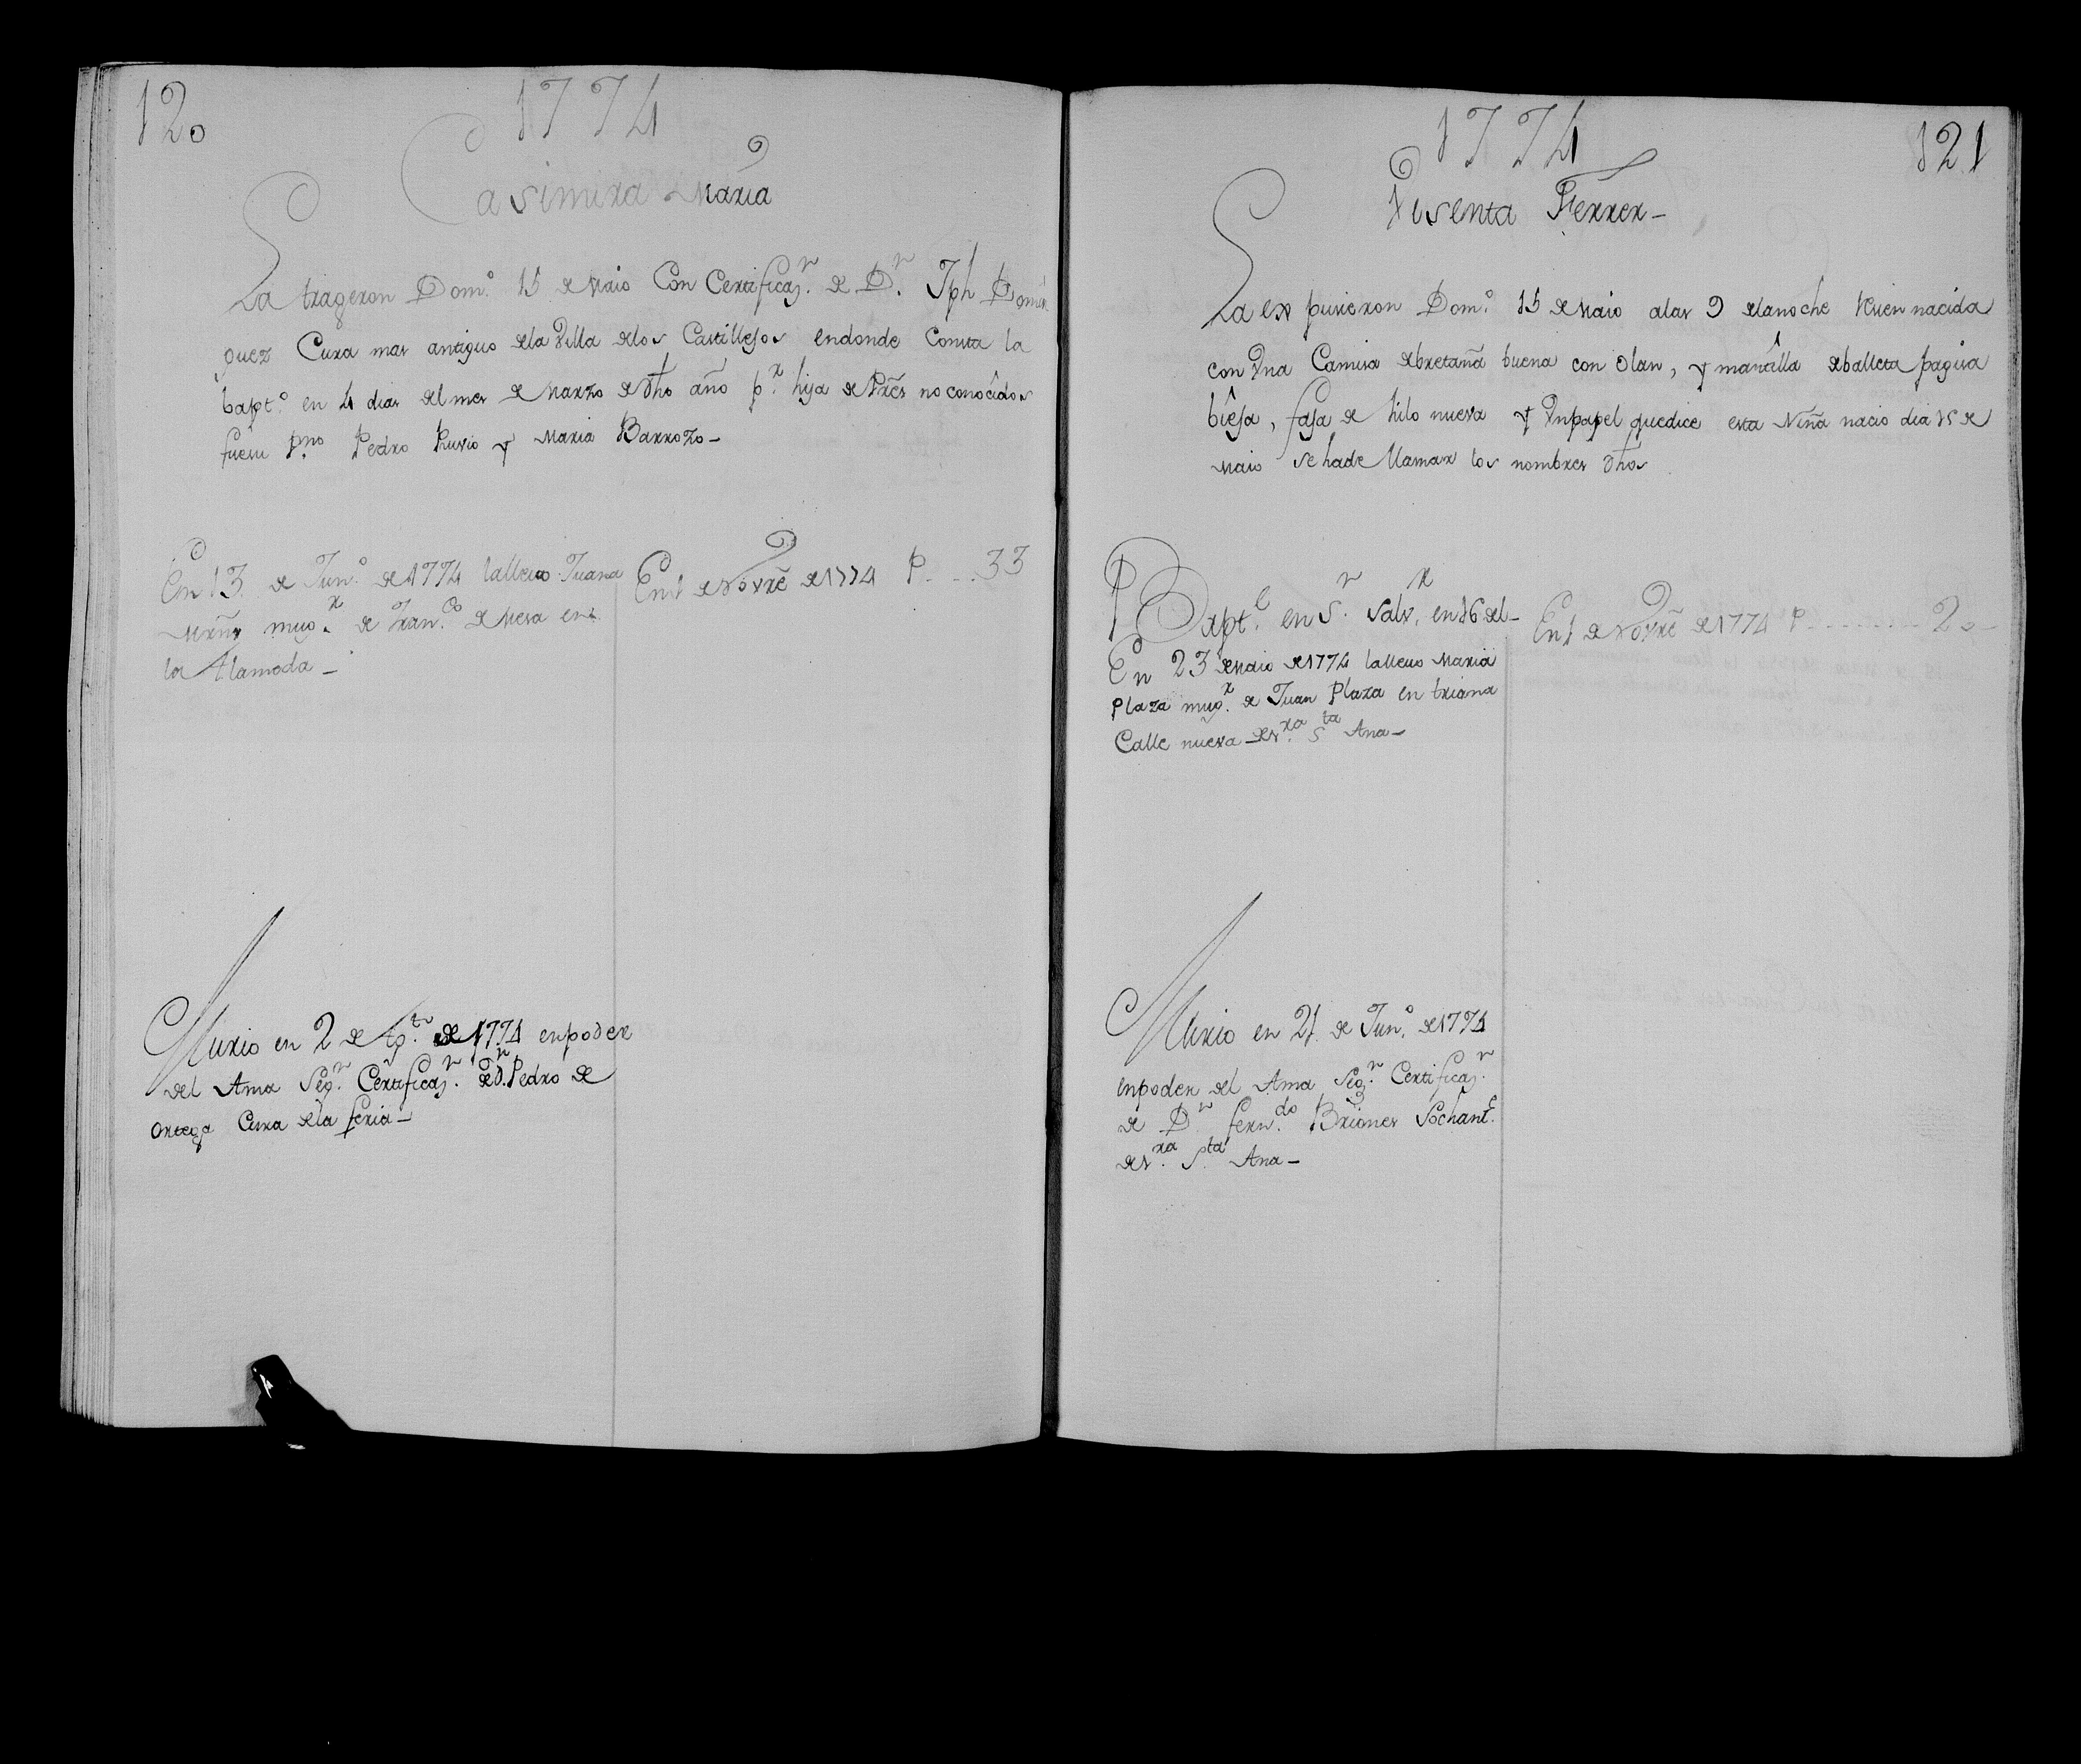 120
1774
Casimira Maria
La trageron Dom.º 15 de Maio Con Certificaz.n de D.n Jph Domin
guez Cura mas antiguo dela Villa delos Castillejos endonde Consta la
bapt.º en 4 dias del mes de Marzo de dho año p.r hija de Pres no conocidos
fueron P.nos Pedro Ruvio y Maria Barrozo-
En 13 de Jun.º de 1774 la llevo Juana
Mrñs mug.r de Fran.co de Mesa en
la Alameda -
En 1 de Novre de 1774 P....33
Murio en 2 de Ag.to de 1774 enpoder
del Ama Seg.n Certificaz.n de D.n Pedro de
Ortega Cura dela feria-
1774
121
Visenta Ferrer-
La expusieron Dom.º 15 de Maio alas 9 delanoche Resien nacida
con Vna Camisa debretaña buena con olan, y mantilla deballeta pagisa
biêja, faja de hilo nueva y Vnpapel quedice esta Niña nacio dia 15 de
Maio se hade llamar los nombres dhos
Bapt.e en S.n Salv.r en 16 del-
En 23 de Maio de 1774 la llevo Maria
Plaza mug.r de Juan Plaza en triana
Calle nueva de S.ra S.ta Ana-
En 1 de Novre de 1774 P........20-
Murio en 21 de Jun.º de 1774
enpoder del Ama Seg.n Certificaz.n
de D.n fern.do Briones Sochant.e
de S.ra S.ta Ana-